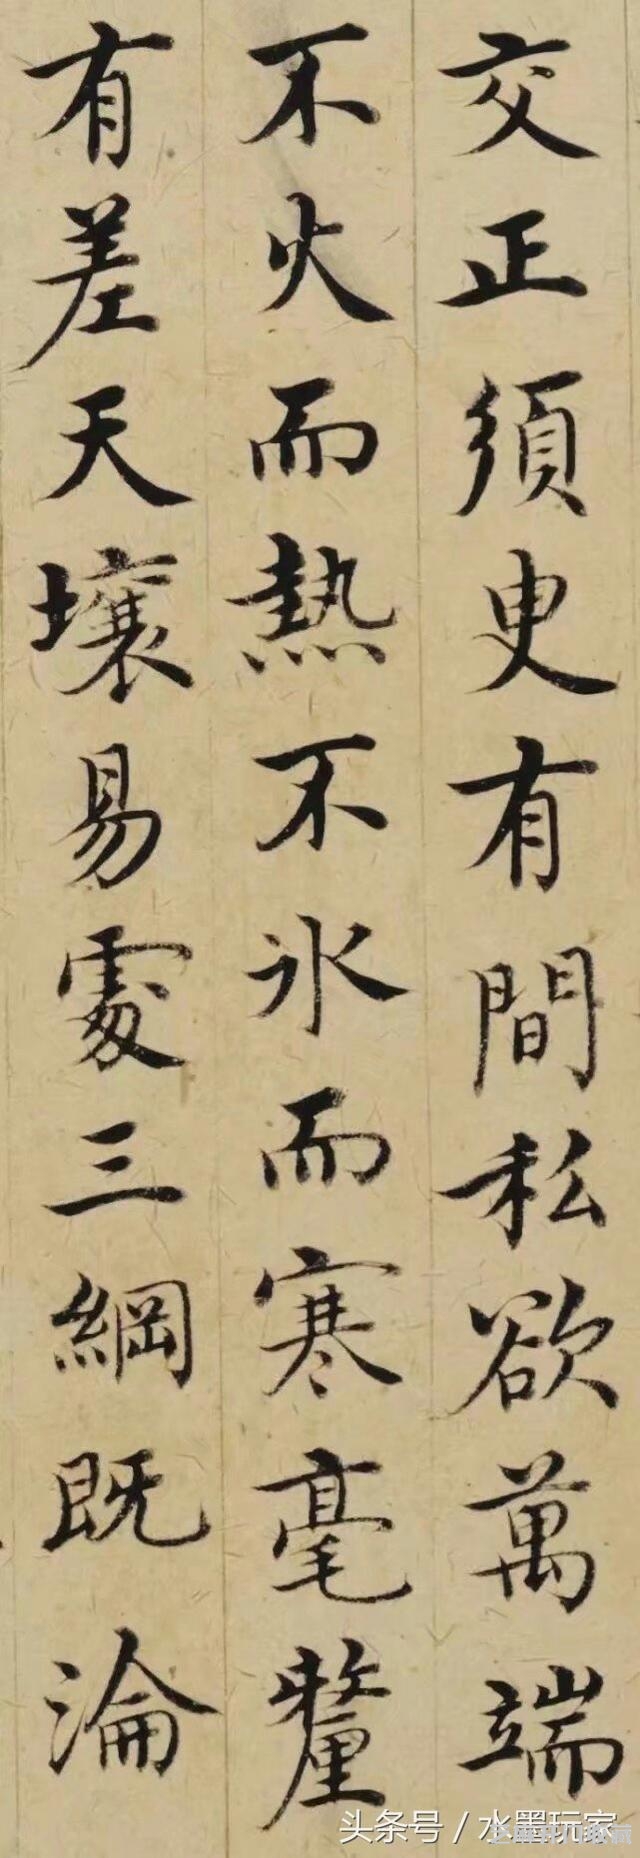 交正須臾有間私欲萬端
不火而熱不氷而寒毫釐
有差天壤易處三綱既淪
头条号 / 水墨玩家